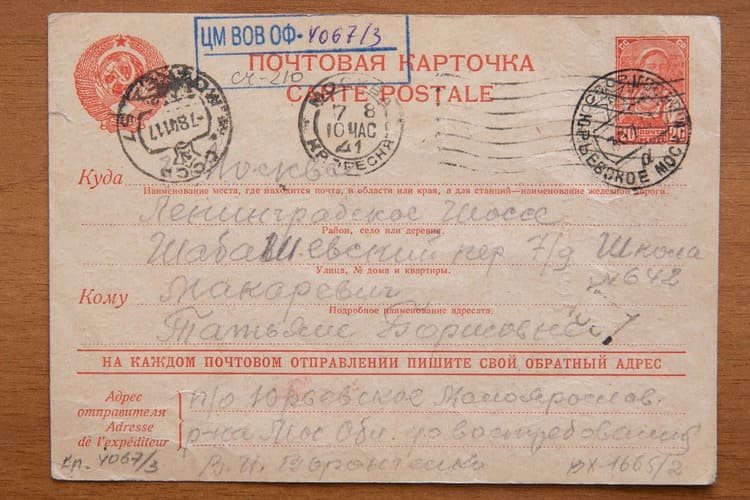 ЦМ ВОВ ОФ-4067/3
СЧ-210
ПОЧТОВАЯ КАРТОЧКА
CARTE POSTALE
7 8
10 ЧАС
41
КР. ПРЕСНЯ
ЮРЬЕВСКОЕ МОС
20 20
Куда Москва
Наименование места, где находится почта, и области или края, а для станций—наименование железной дороги.
Ленинградское Шоссе
Район, село или деревня.
Шебашевский пер 7/9 Школа
Улица, № дома и квартиры.
№642
Кому Макаревич
Подробное наименование адресата:
Татьяне Борисовне
НА КАЖДОМ ПОЧТОВОМ ОТПРАВЛЕНИИ ПИШИТЕ СВОЙ ОБРАТНЫЙ АДРЕС
Адрес п/о Юрьевское Малоярослав.
отправителя
Adresse р-на Мос Обл. до востребования
de l'expéditeur
Кп. 4067/3 В. И. Воронченко ВХ 1665/2